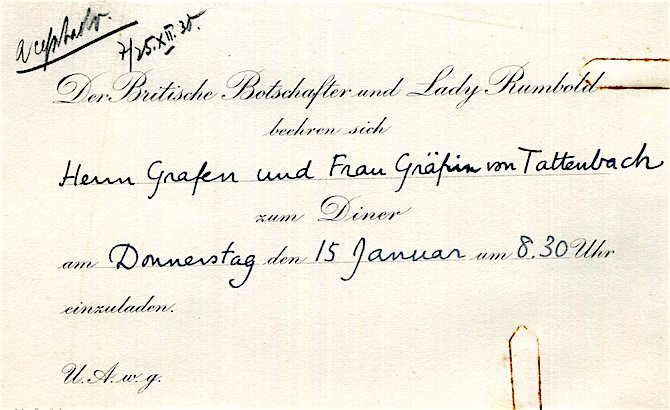 acceptado.
7/25.XII.30.
Der Britische Botschafter und Lady Rumbold
beehren sich
Herrn Grafen und Frau Gräfin von Tattenbach
zum Diner
am Donnerstag den 15 Januar um 8.30 Uhr
einzuladen.
U. A. w. g.